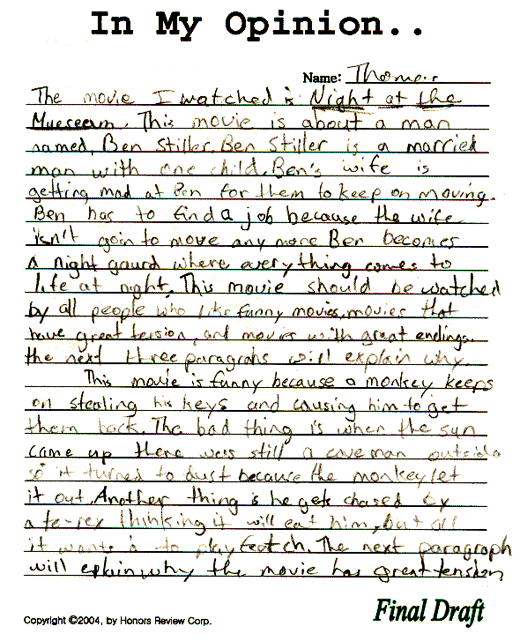 In My Opinion..
Name: Thomas
The movie I watched is Night at the
Mueseum. This movie is about a man
named, Ben Stiller. Ben Stiller is a married
man with one child. Ben's wife is
getting mad at Ben for them to keep on moving.
Ben has to find a job because the wife
isn't goin to move any more Ben becomes
a night gaurd where everything comes to
life at night. This movie should be watched
by all people who like funny movies, movies that
have great tension, and movies with great endings.
the next three paragrahs will explain why.
This movie is funny because a monkey keeps
on stealing his keys and causing him to get
them back. The bad thing is when the sun
came up there was still a cave man outside
so it turned to dust because the monkey let
it out. Another thing is he gets chased by
a te-rex thinking it will eat him, but all
it wants is to play featch. The next paragraph
will eplain, why the movie has great tension
Final Draft
Copyright ©2004, by Honors Review Corp.